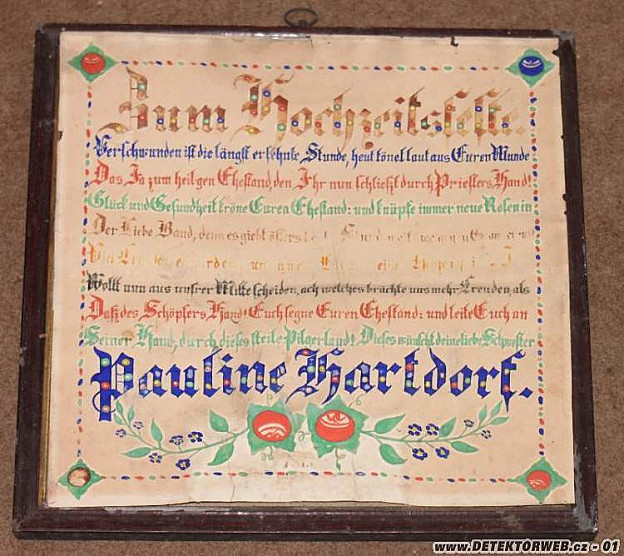 Zum Hochzeitsfeste.
Verschwunden ist die längst ersehnte Stunde, heut tönet laut aus Euren Munde
Das Ja zum heil'gen Ehestand, den Ihr nun schließt durch Priesters Hand!
Glück und Gesundheit kröne Euren Ehestand: und knüpfe immer neue Rosen in
Der Liebe Band, denn es giebt
Wollt nun aus unsrer Mitte scheiden, ach welches brächte uns mehr Freuden, als
Daß des Schöpfers Hand! Euch segne Euren Ehestand: und leite Euch an
Seiner Hand, durch dieses steile Pilgerland! Dieses wünscht deine liebe Schwester
Pauline Hartdorf.
www.DETEKTORWEB.cz - 01